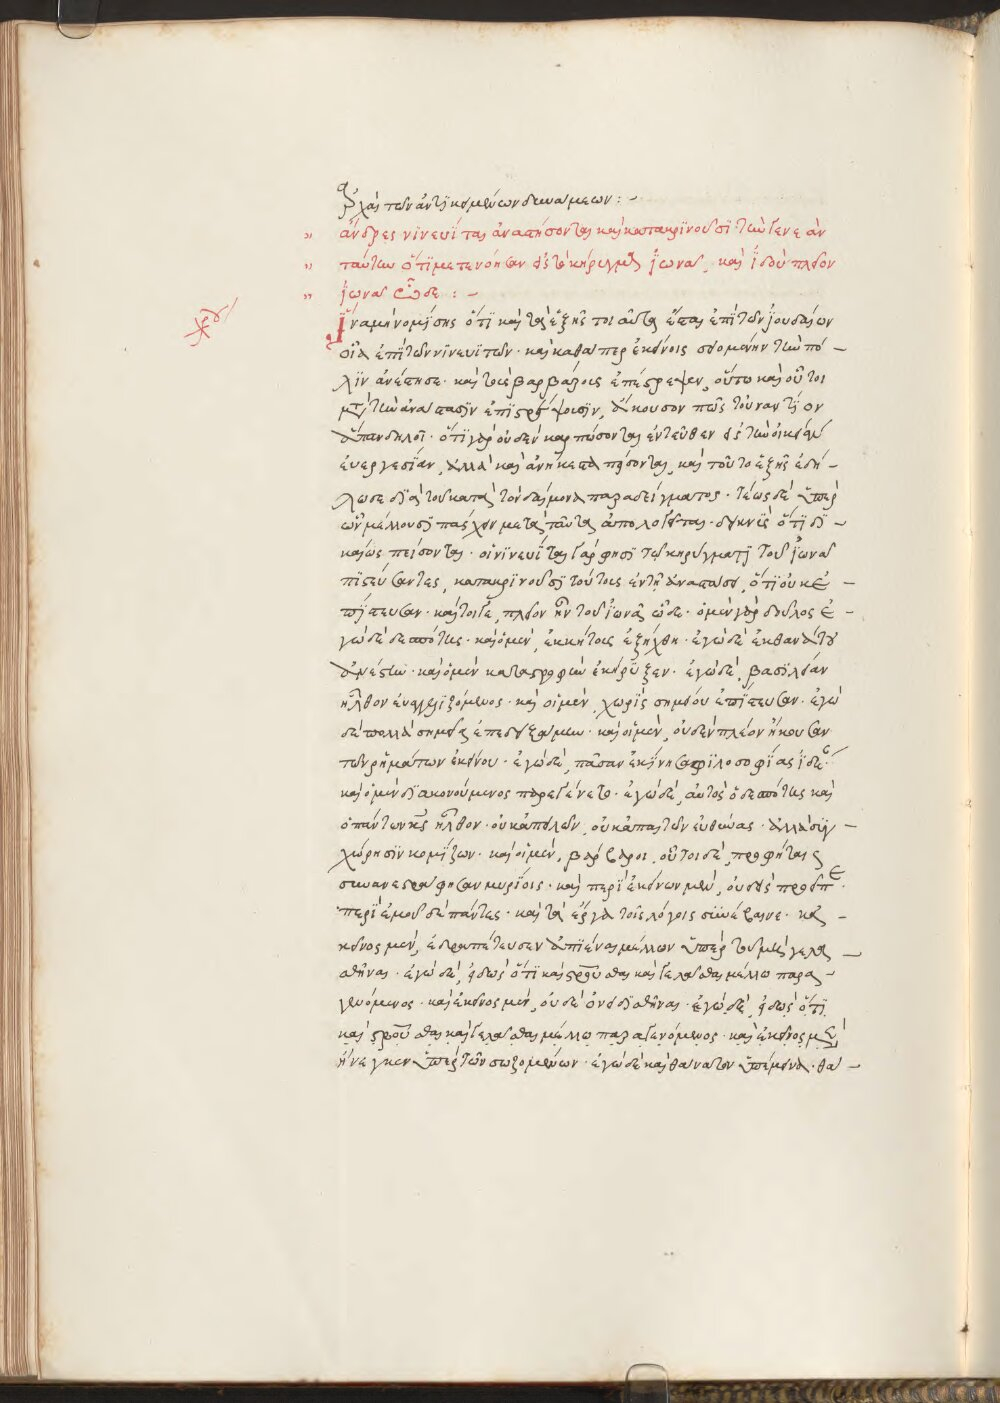 ἀρχὰς τῶν ἀντικειμένων δυνάμεων : –
ἄνδρες νινευῖται ἀναστήσονται καὶ κατακρινοῦσι τὴν γενεὰν
ταύτην ὅτι μετενόησαν εἰς τὸ κήρυγμα ἰωνᾶ, καὶ ἰδοὺ πλεῖον
ἰωνᾶ ὧδε : –
χρυ
ἵνα μὴ νομίσῃς ὅτι καὶ τὰ ἑξῆς τοιαῦτα ἔσται ἐπὶ τῶν ἰουδαίων
οἷα ἐπὶ τῶν νινευϊτῶν · καὶ καθάπερ ἐκείνοις σειομένην τὴν πό –
λιν ἀνέστησε · καὶ τοὺς βαρβάρους ἐπέστρεψεν, οὕτω καὶ οὗτοι
μετὰ τὴν ἀνάστασιν ἐπιστρέψουσιν, ἄκουσον πῶς τοὐναντίον
ἅπαν δηλοῖ · ὅτι γὰρ οὐδὲν καρπώσονται ἐντεῦθεν εἰς τὴν οἰκείαν
εὐεργεσίαν, ἀλλὰ καὶ ἀνήκεστα πείσονται, καὶ τοῦτο ἑξῆς ἐδή –
λωσε διὰ τοῦ κατὰ τὸν δαίμονα παραδείγματος · τέως δὲ ὑπὲρ
ὧν μέλλουσι πάσχειν μετὰ ταῦτα ἀπολογεῖται · δεικνὺς ὅτι δι –
καίως πείσονται · οἱ νινευῖται γάρ φησι τῷ κηρύγματι τοῦ ἰωνᾶ
πιστεύσαντες, κατακρινοῦσι τούτοις ἐν τῇ ἀναστάσει, ὅτι οὐκ ἐ –
πίστευσαν · καίτοιγε, πλεῖον ἦν τοῦ ἰωνᾶ ὧδε · ὁ μὲν γὰρ δοῦλος ἐ –
γὼ δὲ δεσπότης · καὶ ὁ μὲν, ἐκ κήτους ἐξήχθη · ἐγὼ δὲ ἐκ θανάτου
ἀνέστην · καὶ ὁ μὲν καταστροφὴν ἐκήρυξεν · ἐγὼ δὲ, βασιλείαν
ἦλθον εὐαγγελιζόμενος · καὶ οἱ μὲν, χωρὶς σημείου ἐπίστευσαν · ἐγὼ
δὲ πολλὰ σημεῖα ἐπεδειξάμην · καὶ οἱ μὲν, οὐδὲν πλέον ἤκουσαν
τῶν ῥημάτων ἐκείνου · ἐγὼ δὲ, πᾶσαν ἐκίνησα φιλοσοφίας ἰδέαν
καὶ ὁ μὲν διακονούμενος παρεγένετο · ἐγὼ δὲ, αὐτὸς ὁ δεσπότης καὶ
ὁ πάντων κς ἦλθον · οὐκ ἀπειλῶν, οὐκ ἀπαιτῶν εὐθύνας · ἀλλὰ συγ –
χώρησιν κομίζων · καὶ οἱ μὲν, βάρβαροι, οὗτοι δὲ, προφήταις
συνανεστράφησαν μυρίοις · καὶ περὶ ἐκείνων μὲν, οὐδεὶς προεῖπε ·
περὶ ἐμοῦ δὲ πάντες · καὶ τὰ ἔργα τοῖς λόγοις συνέβαινε · κἀ –
κεῖνος μὲν, ἐδραπέτευσεν ἀπιέναι μέλλων ὑπὲρ τοῦ μὴ γελα
σθῆναι · ἐγὼ δὲ, εἰδὼς ὅτι καὶ σταυροῦσθαι καὶ γελᾶσθαι μέλλω παρα –
γενόμενος · καὶ ἐκεῖνος μὲν, οὐδὲ ὀνειδισθῆναι · ἐγὼ δὲ, εἰδὼς ὅτι
καὶ σταυροῦσθαι καὶ γελᾶσθαι μέλλω παραγενόμενος · καὶ ἐκεῖνος μὲν
ἤνεγκεν ὑπὲρ τῶν σωζομένων · ἐγὼ δὲ καὶ θάνατον ὑπέμεινα · θά –